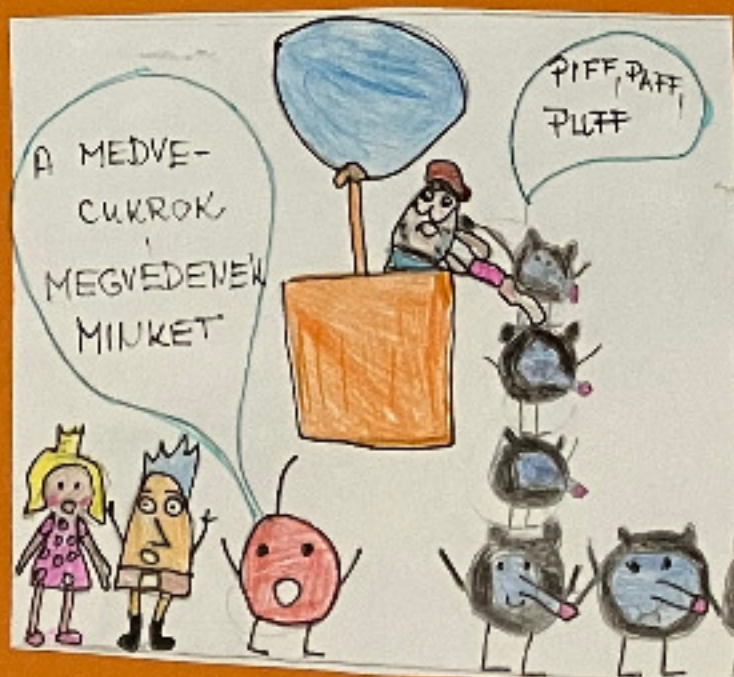 A MEDVE-
CUKROK
MEGVÉDENEK
MINKET
PIFF, PAFF,
PUFF